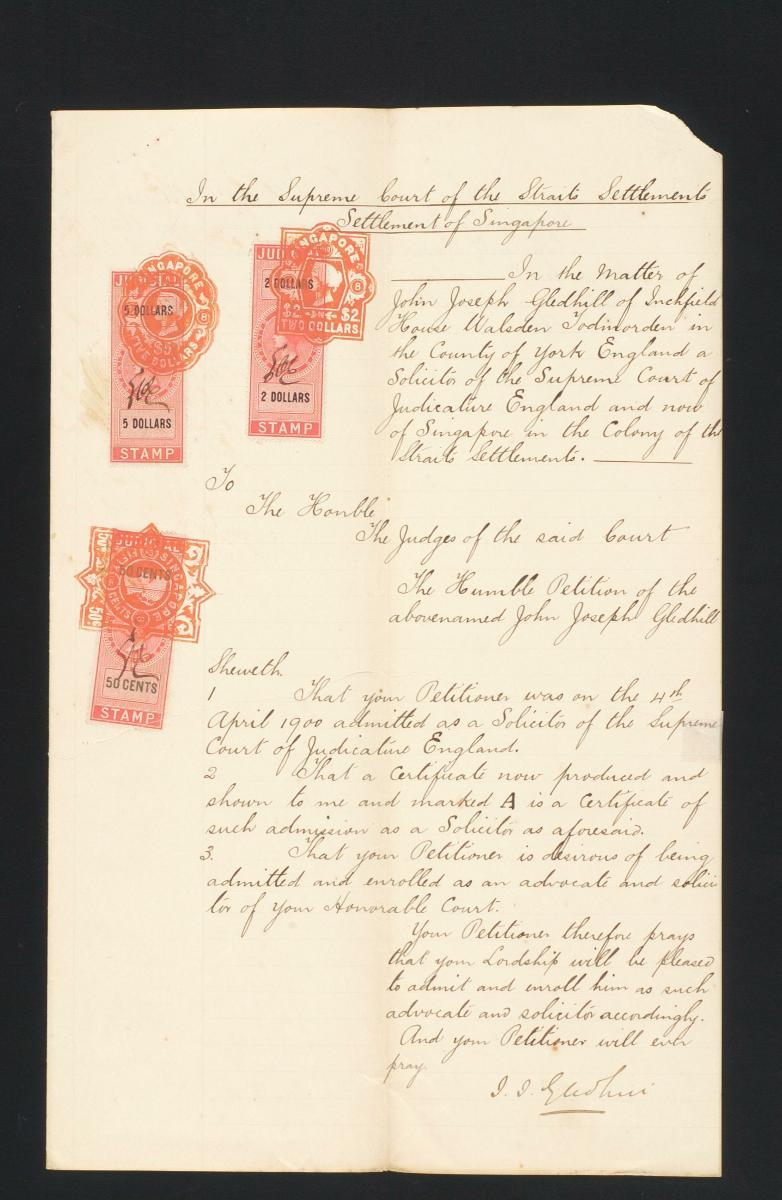 In the Supreme Court of the Straits Settlements
Settlement of Singapore
In the Matter of
John Joseph Gledhill of Inchfield
House Walsden Todmorden in
the County of York England a
Solicitor of the Supreme Court of
Judicature England and now
of Singapore in the Colony of the
Straits Settlements.
JUDICIAL
SINGAPORE
5 DOLLARS
8
$5
FIVE DOLLARS
5 DOLLARS
STAMP
JUDICIAL
SINGAPORE
2 DOLLARS
8
$2 $2
TWO DOLLARS
2 DOLLARS
STAMP
To
The Honble
The Judges of the said Court
The Humble Petition of the
abovenamed John Joseph Gledhill
JUDICIAL
50c
SINGAPORE
50 CENTS
50c
50 CENTS
STAMP
Sheweth
1 That your Petitioner was on the 4th
April 1900 admitted as a Solicitor of the Supreme
Court of Judicature England.
2 That a Certificate now produced and
shown to me and marked A is a Certificate of
such admission as a Solicitor as aforesaid.
3. That your Petitioner is desirous of being
admitted and enrolled as an advocate and solici
tor of your Honorable Court.
Your Petitioner therefore prays
that your Lordship will be pleased
to admit and enroll him as such
advocate and solicitor accordingly.
And your Petitioner will ever
pray.
J. J. Gledhill